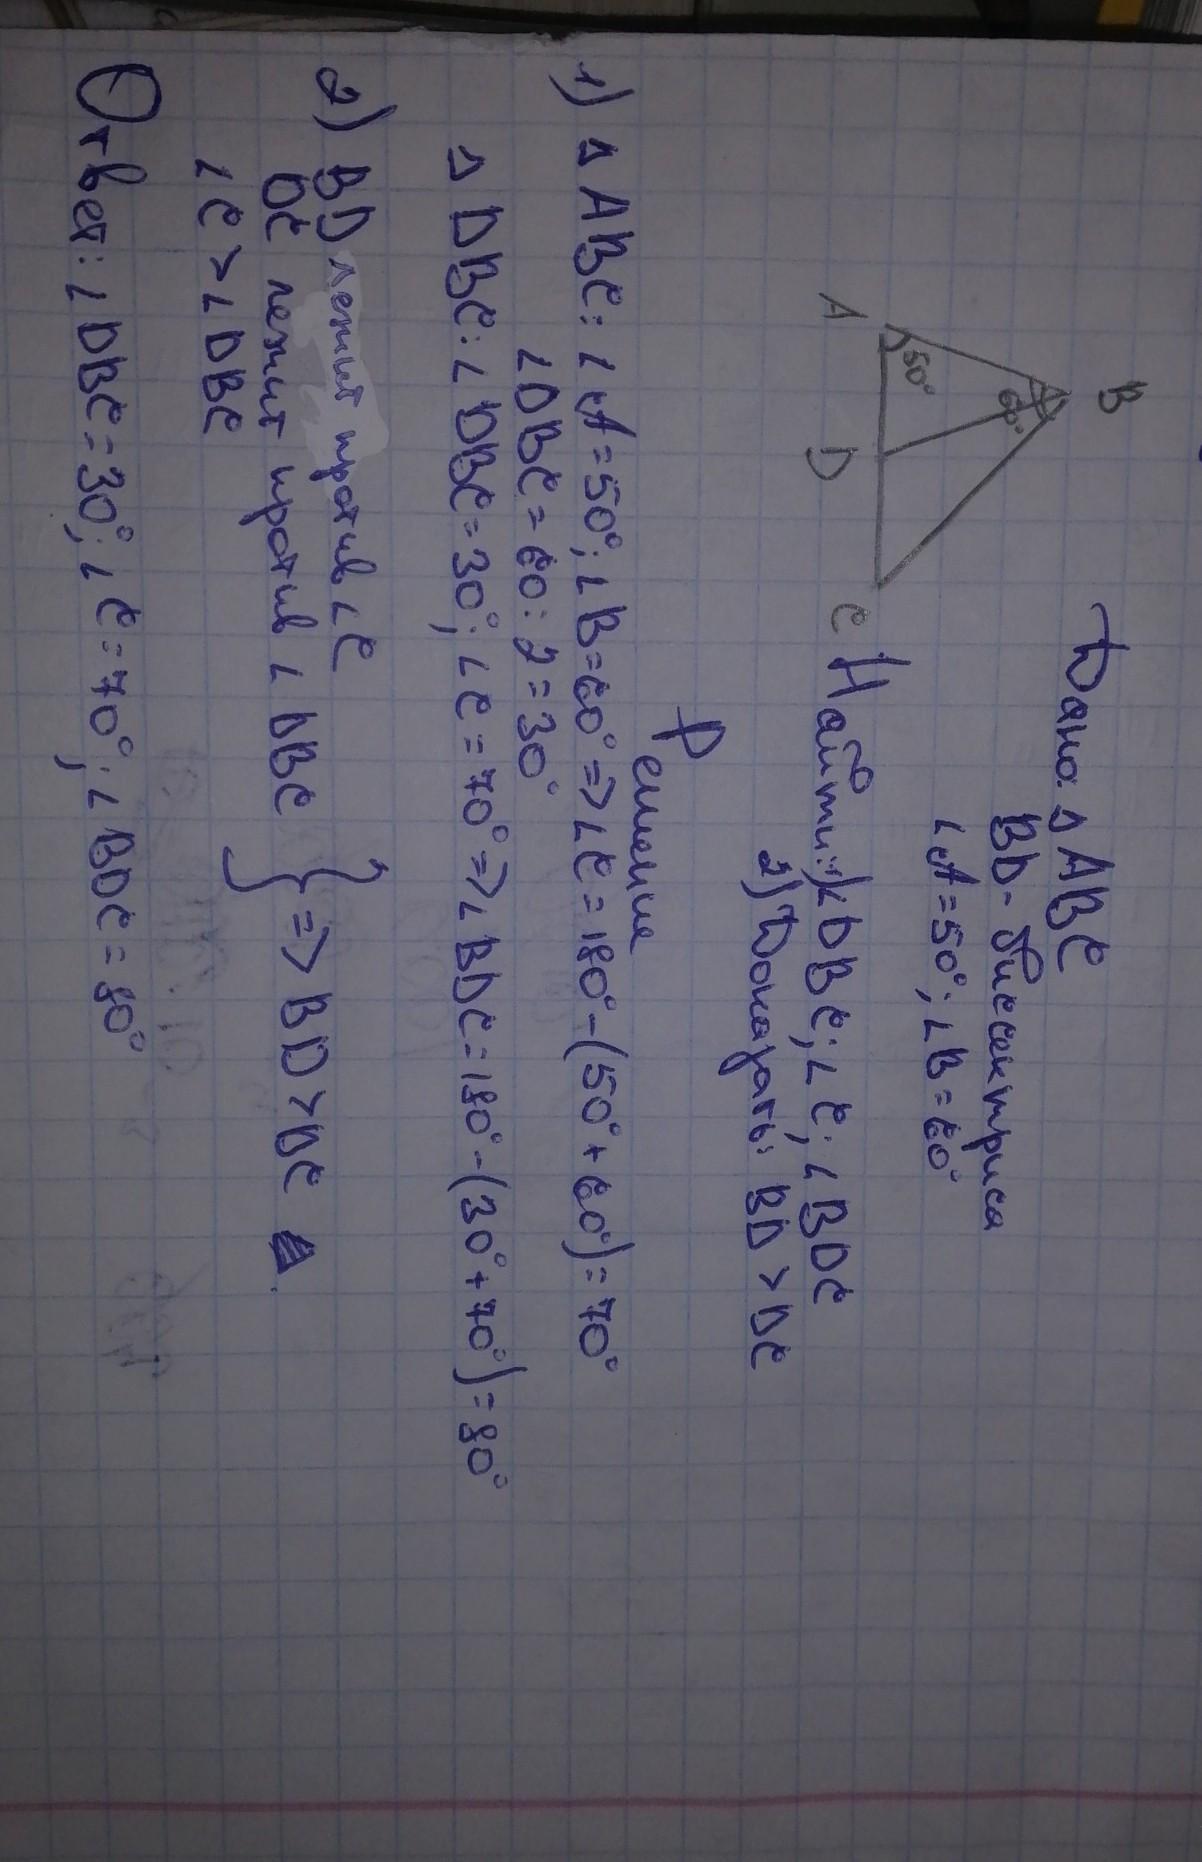 Дано: △ABC
BD - биссектриса
∠A = 50°; ∠B = 60°
B
60°
50°
A
D
C
Найти: 1) ∠DBC; ∠C; ∠BDC
2) Доказать: BD > DC
Решение
1) △ABC: ∠A = 50°; ∠B = 60° => ∠C = 180° - (50° + 60°) = 70°
∠DBC = 60 : 2 = 30°
△DBC: ∠DBC = 30°; ∠C = 70° => ∠BDC = 180° - (30° + 70°) = 80°
2) BD лежит против ∠C
DC лежит против ∠DBC } => BD > DC
∠C > ∠DBC
Ответ: ∠DBC = 30°; ∠C = 70°; ∠BDC = 80°